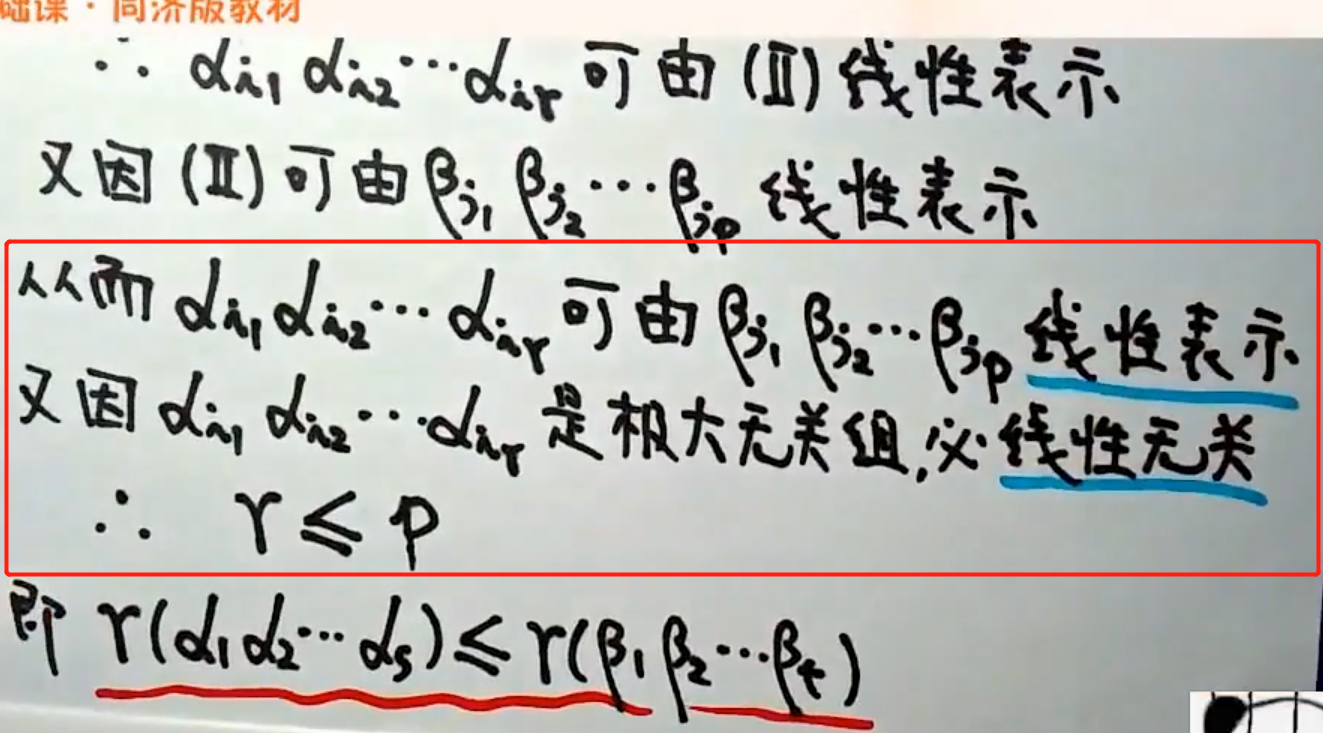 础课·同济版教材
∴ αi1 αi2 ⋯ αir 可由 (Ⅱ) 线性表示
又因 (Ⅱ) 可由 βj1 βj2 ⋯ βjp 线性表示
从而 αi1 αi2 ⋯ αir 可由 βj1 βj2 ⋯ βjp 线性表示
又因 αi1 αi2 ⋯ αir 是极大无关组,必线性无关
∴ r ≤ p
即 r(α1 α2 ⋯ αs) ≤ r(β1 β2 ⋯ βt)